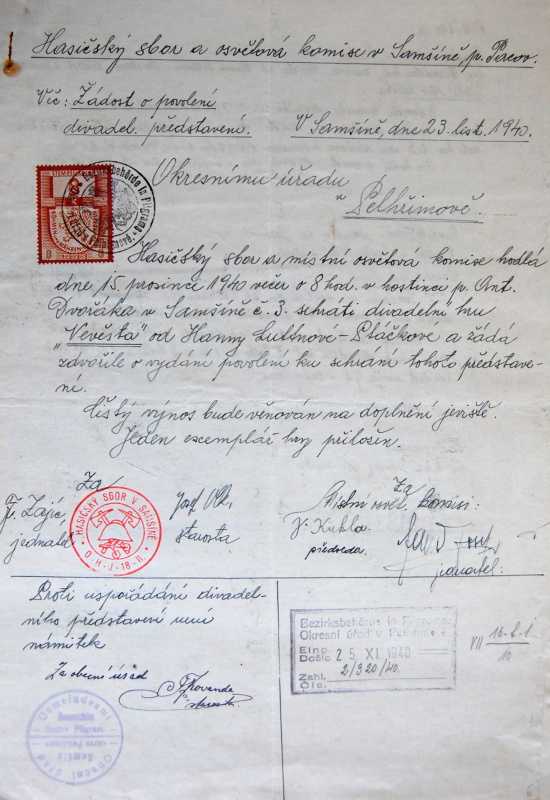 Hasičský sbor a osvětová komise v Samšíně, p. Pacov.
Věc: Žádost o povolení
divadel. představení.
V Samšíně, dne 23. list. 1940.
Okresnímu úřadu
v
Pelhřimově.
Hasičský sbor a místní osvětová komise hodlá
dne 15. prosince 1940 večer o 8 hod. v hostinci p. Ant.
Dvořáka v Samšíně č. 3. sehráti divadelní hru
„Nevěsta" od Hanny Luttnové-Ptáčkové a žádá
zdvořile o vydání povolení ku sehrání tohoto představe-
ní.
Čistý výnos bude věnován na doplnění jeviště.
Jeden exemplář hry přiložen.
Za
Fr. Zajíc,
jednatel
HASIČSKÝ SBOR V SAMŠÍNĚ
O-H-J-18-II.
Josef
starosta
Za
Místní osvět. komisi:
Kukla
předseda
jednatel:
Proti uspořádání divadel-
ního představení není
námitek
Za obecní úřad
Kovanda
starosta
Gemeindeamt
Bezirk Pilgram
Obecní úřad
Bezirksbehörde in Pilgrams
Okresní úřad v Pelhřimově
Eing.
Došlo 25. XI. 1940
Zahl.
Čís. 21320/40.
VII 16-b-1
10